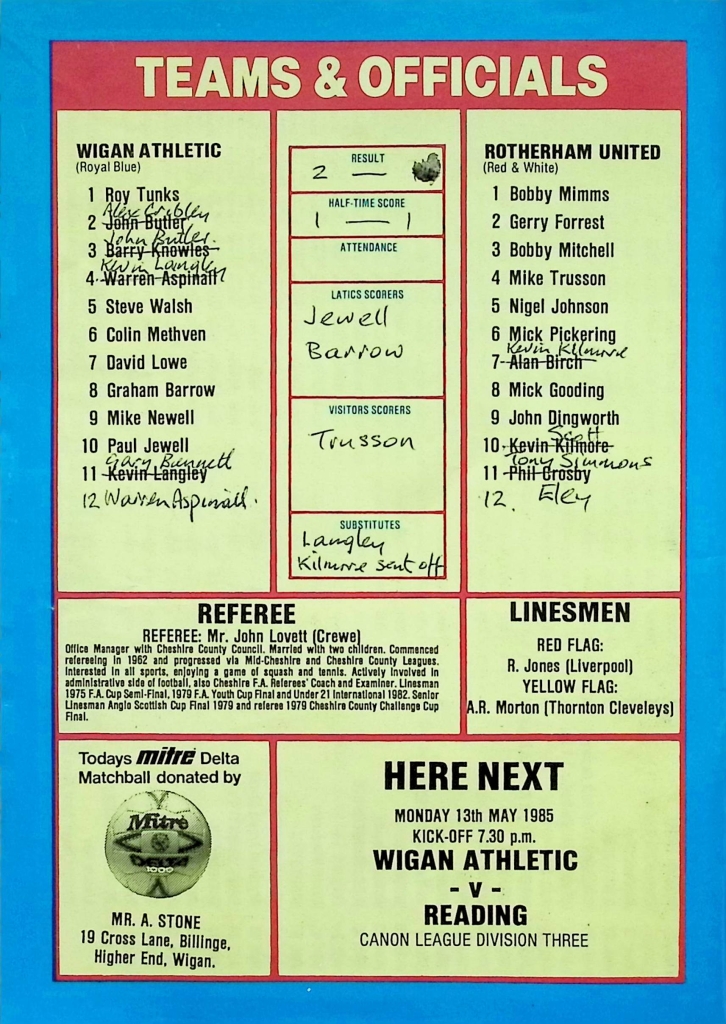 TEAMS & OFFICIALS
WIGAN ATHLETIC
(Royal Blue)
1 Roy Tunks
Alex Cribley
2 John Butler
John Butler.
3 Barry Knowles
Kevin Langley
4 Warren Aspinall
5 Steve Walsh
6 Colin Methven
7 David Lowe
8 Graham Barrow
9 Mike Newell
10 Paul Jewell
Gary Bennett
11 Kevin Langley
12 Warren Aspinall.
RESULT
2 —
HALF-TIME SCORE
1 — 1
ATTENDANCE
LATICS SCORERS
Jewell
Barrow
VISITORS SCORERS
Trusson
SUBSTITUTES
Langley
Kilmore sent off
ROTHERHAM UNITED
(Red & White)
1 Bobby Mimms
2 Gerry Forrest
3 Bobby Mitchell
4 Mike Trusson
5 Nigel Johnson
6 Mick Pickering
Kevin Kilmore
7 Alan Birch
8 Mick Gooding
9 John Dingworth
Scott
10 Kevin Kilmore
Tony Simmons
11 Phil Crosby
12. Eley
REFEREE
REFEREE: Mr. John Lovett (Crewe)
Office Manager with Cheshire County Council. Married with two children. Commenced
refereeing in 1962 and progressed via Mid-Cheshire and Cheshire County Leagues.
Interested in all sports, enjoying a game of squash and tennis. Actively involved in
administrative side of football, also Cheshire F.A. Referees' Coach and Examiner. Linesman
1975 F.A. Cup Semi-Final, 1979 F.A. Youth Cup Final and Under 21 International 1982. Senior
Linesman Anglo Scottish Cup Final 1979 and referee 1979 Cheshire County Challenge Cup
Final.
LINESMEN
RED FLAG:
R. Jones (Liverpool)
YELLOW FLAG:
A.R. Morton (Thornton Cleveleys)
Todays mitre Delta
Matchball donated by
Mitre
DELTA
1000
MR. A. STONE
19 Cross Lane, Billinge,
Higher End, Wigan.
HERE NEXT
MONDAY 13th MAY 1985
KICK-OFF 7.30 p.m.
WIGAN ATHLETIC
- V -
READING
CANON LEAGUE DIVISION THREE